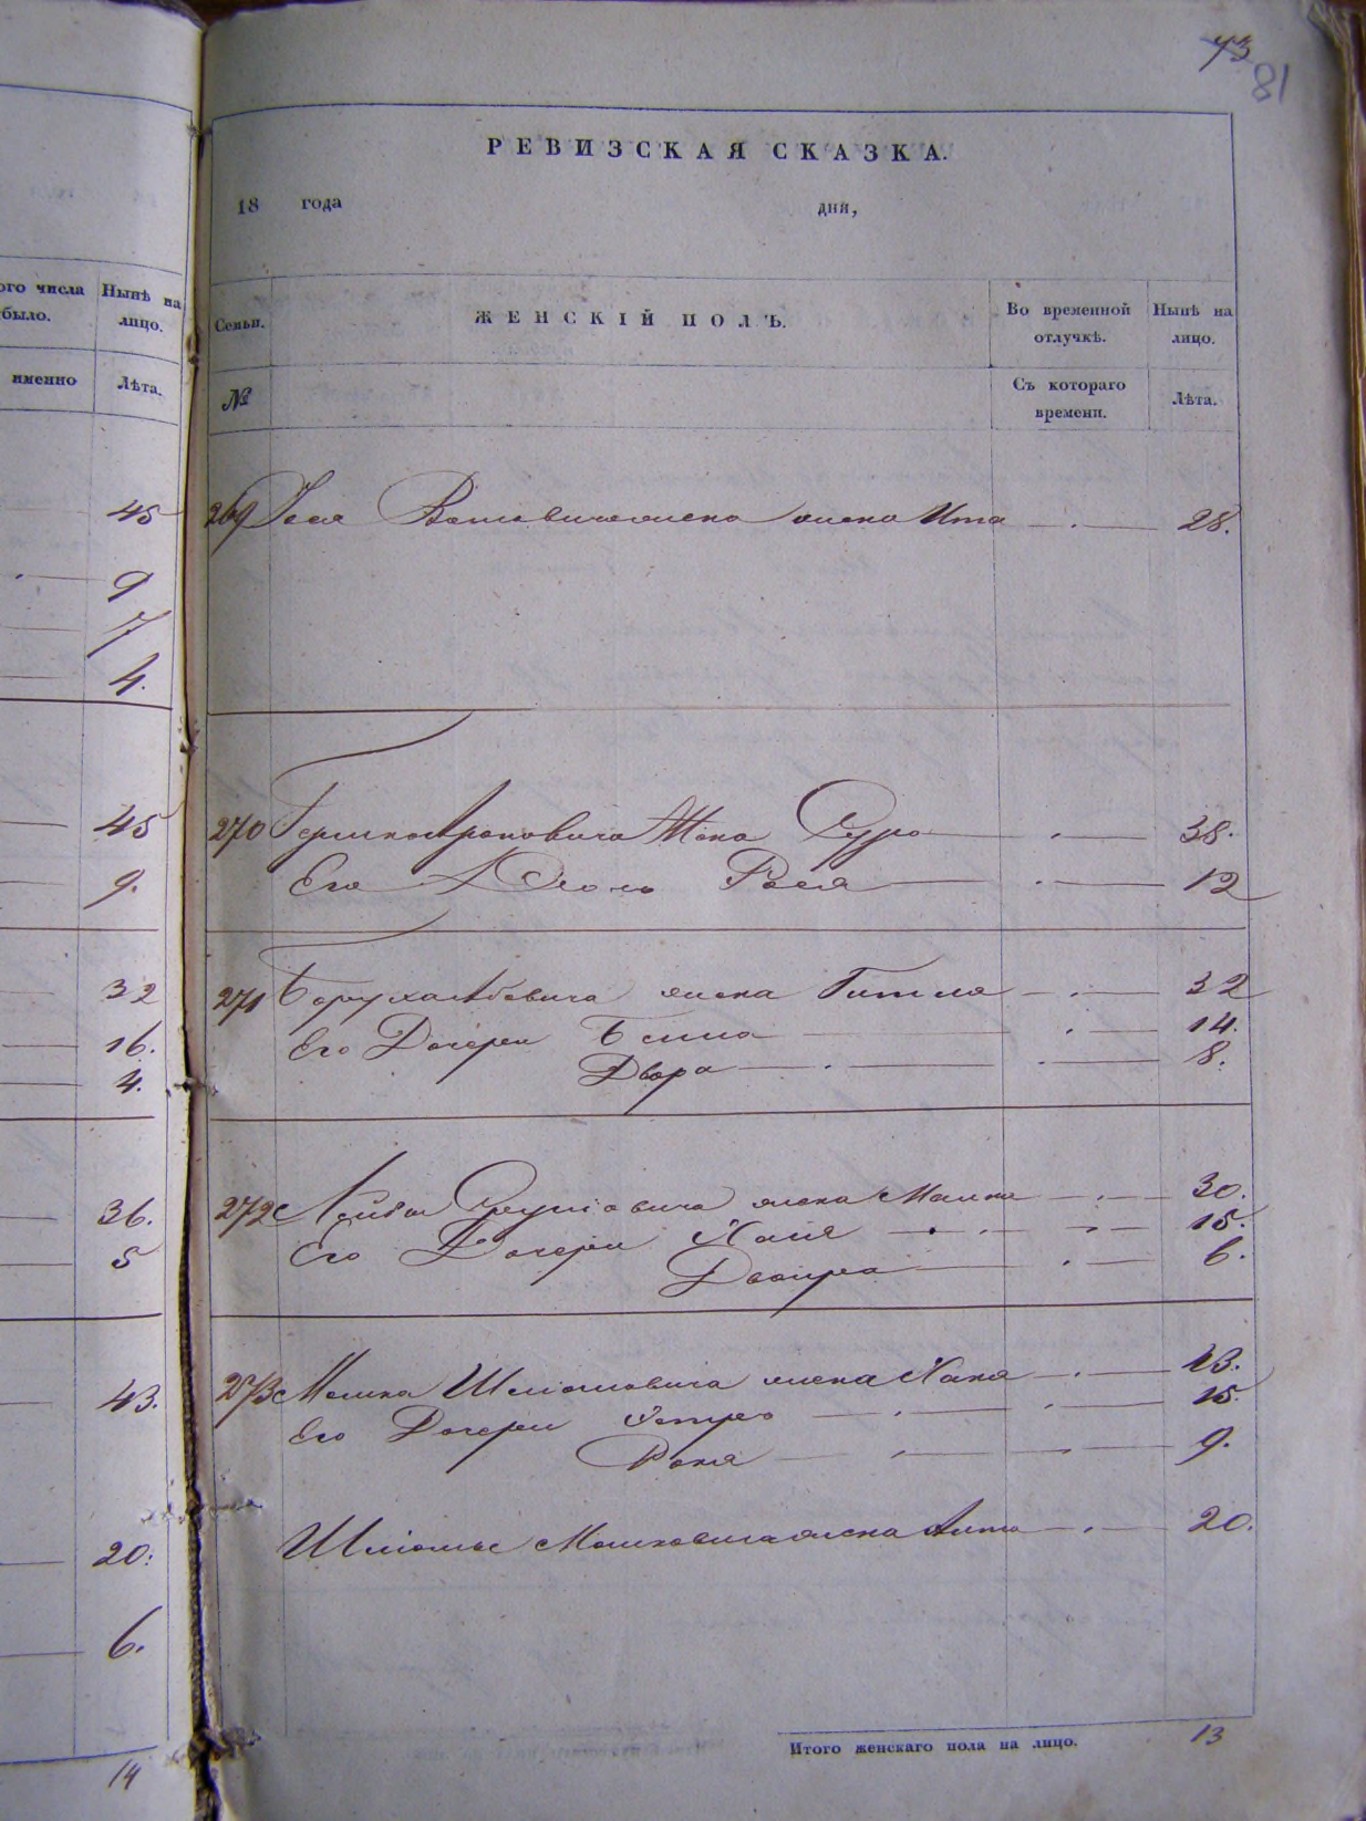 73
81
РЕВИЗСКАЯ СКАЗКА.
18 года дня,
ого числа
было.
Нынѣ на
лицо.
именно
Лѣта.
Семьи.
ЖЕНСКІЙ ПОЛЪ.
Во временной
отлучкѣ.
Нынѣ на
лицо.
№
Съ котораго
времени.
Лѣта.
45
9
7
4.
269 жена Ита 28.
45
270 Гершко Ароновича Жена 38.
9.
Его Дочь Рося 12
32
271 Боруха Абовича жена Гитля 32
16.
Его Дочери Бейла 14.
4.
Двора 8.
36.
272 Лейбы жена Малка 30.
5
Его Дочери Хася 15.
Двойра 6.
43.
273 Мошка Шліомовича жена Хана 43.
Его Дочери Естра 15.
9.
20.
Шліомы Мошковича жена 20.
6.
14
Итого женскаго пола на лицо. 13